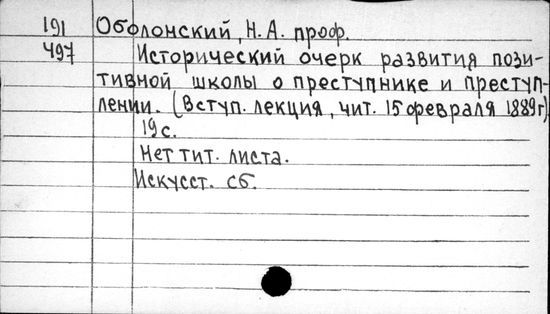 191 Оболонский, Н. А. проф.
497 Исторический очерк развития пози-
тивной школы о преступнике и преступ-
лении. (Вступ. лекция, чит. 15 февраля 1889 г)
19 с.
Нет тит. листа.
Искусст. сб.